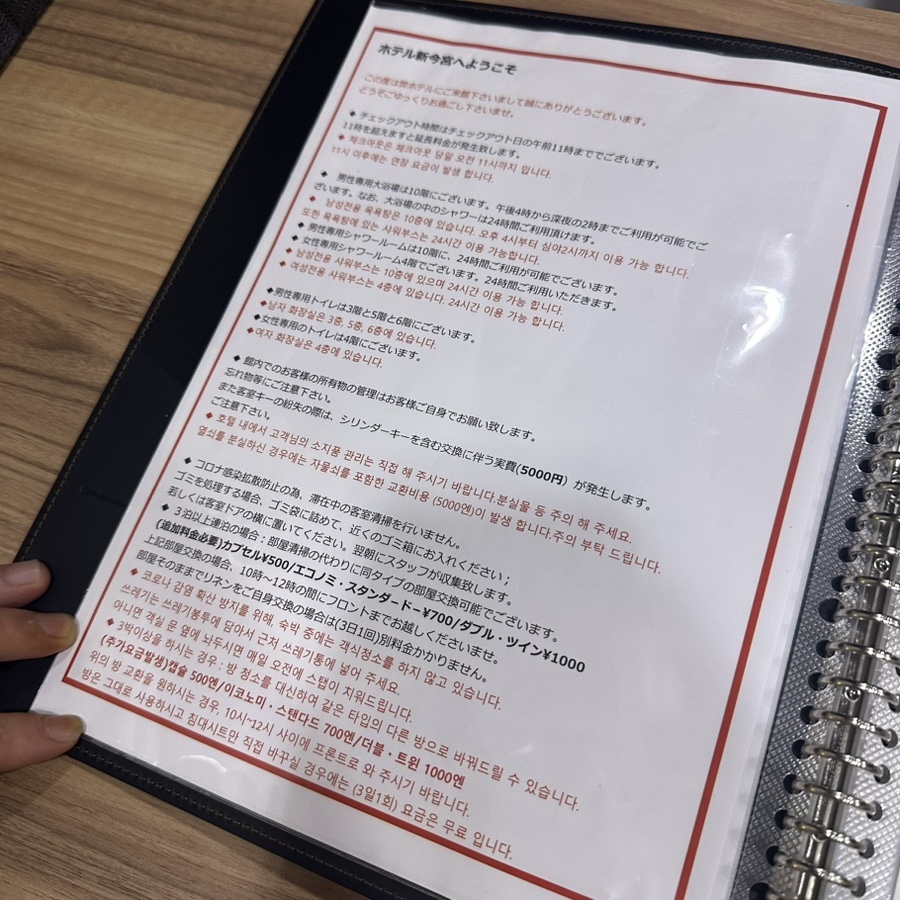 ホテル新今宮へようこそ
この度は弊ホテルにご来館下さいまして誠にありがとうございます。
どうぞごゆっくりお過ごし下さいませ。
◆ チェックアウト時間はチェックアウト日の午前11時まででございます。
11時を超えますと延長料金が発生致します。
◆ 체크아웃은 체크아웃 당일 오전 11시까지 입니다.
11시 이후에는 연장 요금이 발생 합니다.
◆ 男性専用大浴場は10階にございます。午後4時から深夜の2時までご利用が可能でご
ざいます。なお、大浴場の中のシャワーは24時間ご利用頂けます。
◆ 남성전용 목욕탕은 10층에 있습니다. 오후 4시부터 심야2시까지 이용 가능 합니다.
또한 목욕탕에 있는 샤워부스는 24시간 이용 가능합니다.
◆ 男性専用シャワールームは10階に、24時間ご利用が可能でございます。
◆ 女性専用シャワールーム4階でございます。24時間ご利用いただきます。
◆ 남성전용 샤워부스는 10층에 있으며 24시간 이용 가능 합니다.
◆ 여성전용 샤워부스는 4층에 있습니다. 24시간 이용 가능 합니다.
◆男性専用トイレは3階と5階と6階にございます。
◆남자 화장실은 3층, 5층, 6층에 있습니다.
◆女性専用のトイレは4階にございます。
◆여자 화장실은 4층에 있습니다.
◆ 館内でのお客様の所有物の管理はお客様ご自身でお願い致します。
忘れ物等にご注意下さい。
また客室キーの紛失の際は、シリンダーキーを含む交換に伴う実費(5000円）が発生します。
ご注意下さい。
◆ 호텔 내에서 고객님의 소지품 관리는 직접 해 주시기 바랍니다.분실물 등 주의 해 주세요.
열쇠를 분실하신 경우에는 자물쇠를 포함한 교환비용 (5000엔)이 발생 합니다.주의 부탁 드립니다.
◆ コロナ感染拡散防止の為、滞在中の客室清掃を行いません。
ゴミを処理する場合、ゴミ袋に詰めて、近くのゴミ箱にお入れください；
若しくは客室ドアの横に置いてください。翌朝にスタッフが収集致します。
◆ 3泊以上連泊の場合：部屋清掃の代わりに同タイプの部屋交換可能でございます。
(追加料金必要)カプセル¥500/エコノミ・スタンダードー¥700/ダブル・ツイン¥1000
上記部屋交換の場合、10時～12時の間にフロントまでお越しくださいませ。
部屋そのままでリネンをご自身交換の場合は(3日1回)別料金かかりません。
◆ 코로나 감염 확산 방지를 위해, 숙박 중에는 객식청소를 하지 않고 있습니다.
쓰레기는 쓰레기봉투에 담아서 근처 쓰레기통에 넣어 주세요.
아니면 객실 문 옆에 놔두시면 매일 오전에 스탭이 치워드립니다.
◆ 3박이상을 하시는 경우 : 방 청소를 대신하여 같은 타입의 다른 방으로 바꿔드릴 수 있습니다.
(추가요금발생)캡슐 500엔/이코노미・스탠다드 700엔/더블・트윈 1000엔
위의 방 교환을 원하시는 경우, 10시~12시 사이에 프론트로 와 주시기 바랍니다.
방은 그대로 사용하시고 침대시트만 직접 바꾸실 경우에는 (3일1회) 요금은 무료 입니다.